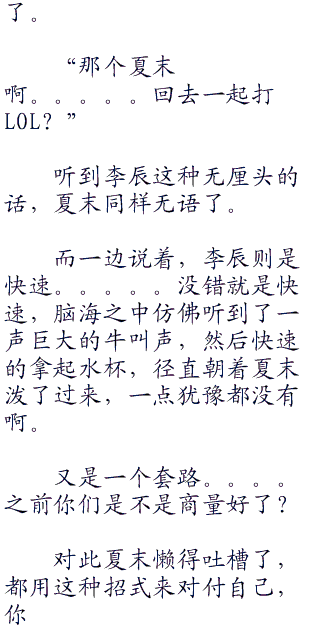 了。
“那个夏末
啊。。。。。回去一起打
LOL？”
听到李辰这种无厘头的
话，夏末同样无语了。
而一边说着，李辰则是
快速。。。。。没错就是快
速，脑海之中仿佛听到了一
声巨大的牛叫声，然后快速
的拿起水杯，径直朝着夏末
泼了过来，一点犹豫都没有
啊。
又是一个套路。。。。
之前你们是不是商量好了？
对此夏末懒得吐槽了，
都用这种招式来对付自己，
你